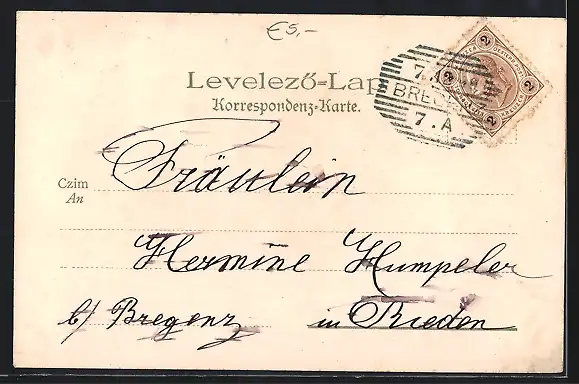 €5,-
Levelező-Lap
Korrespondenz-Karte.
7
BREGE
7.A
2 2 2 2
Czim
An
Fräulein
Hermine Humpeler
b/ Bregenz in Rieden